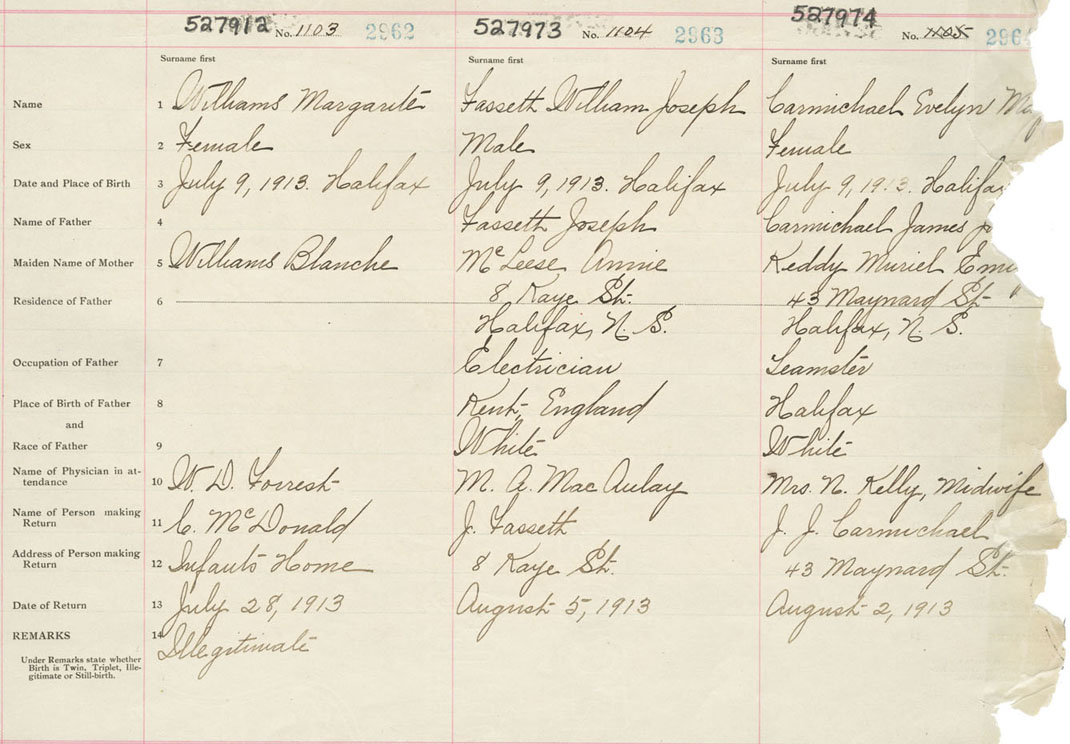 527912 No. 1103 2962 527973 No. 1104 2963 527974 No. 1105 296
Surname first Surname first Surname first
Name 1 Williams Margarite Fasseth William Joseph Carmichael Evelyn
Sex 2 Female Male Female
Date and Place of Birth 3 July 9, 1913. Halifax July 9, 1913. Halifax July 9, 1913. Halifax
Name of Father 4 Fasseth Joseph Carmichael James
Maiden Name of Mother 5 Williams Blanche McLeese Annie Keddy Muriel
Residence of Father 6 8 Kaye St. 43 Maynard St.
Halifax, N. S. Halifax, N. S.
Occupation of Father 7 Electrician Teamster
Place of Birth of Father 8 Kent, England Halifax
and
Race of Father 9 White White
Name of Physician in at-
tendance 10 W. D. Forrest M. A. MacAulay Mrs. N. Kelly, Midwife
Name of Person making
Return 11 C. McDonald J. Fasseth J. J. Carmichael
Address of Person making
Return 12 Infants Home 8 Kaye St. 43 Maynard St.
Date of Return 13 July 28, 1913 August 5, 1913 August 2, 1913
REMARKS 14 Illegitimate
Under Remarks state whether
Birth is Twin, Triplet, Ille-
gitimate or Still-birth.